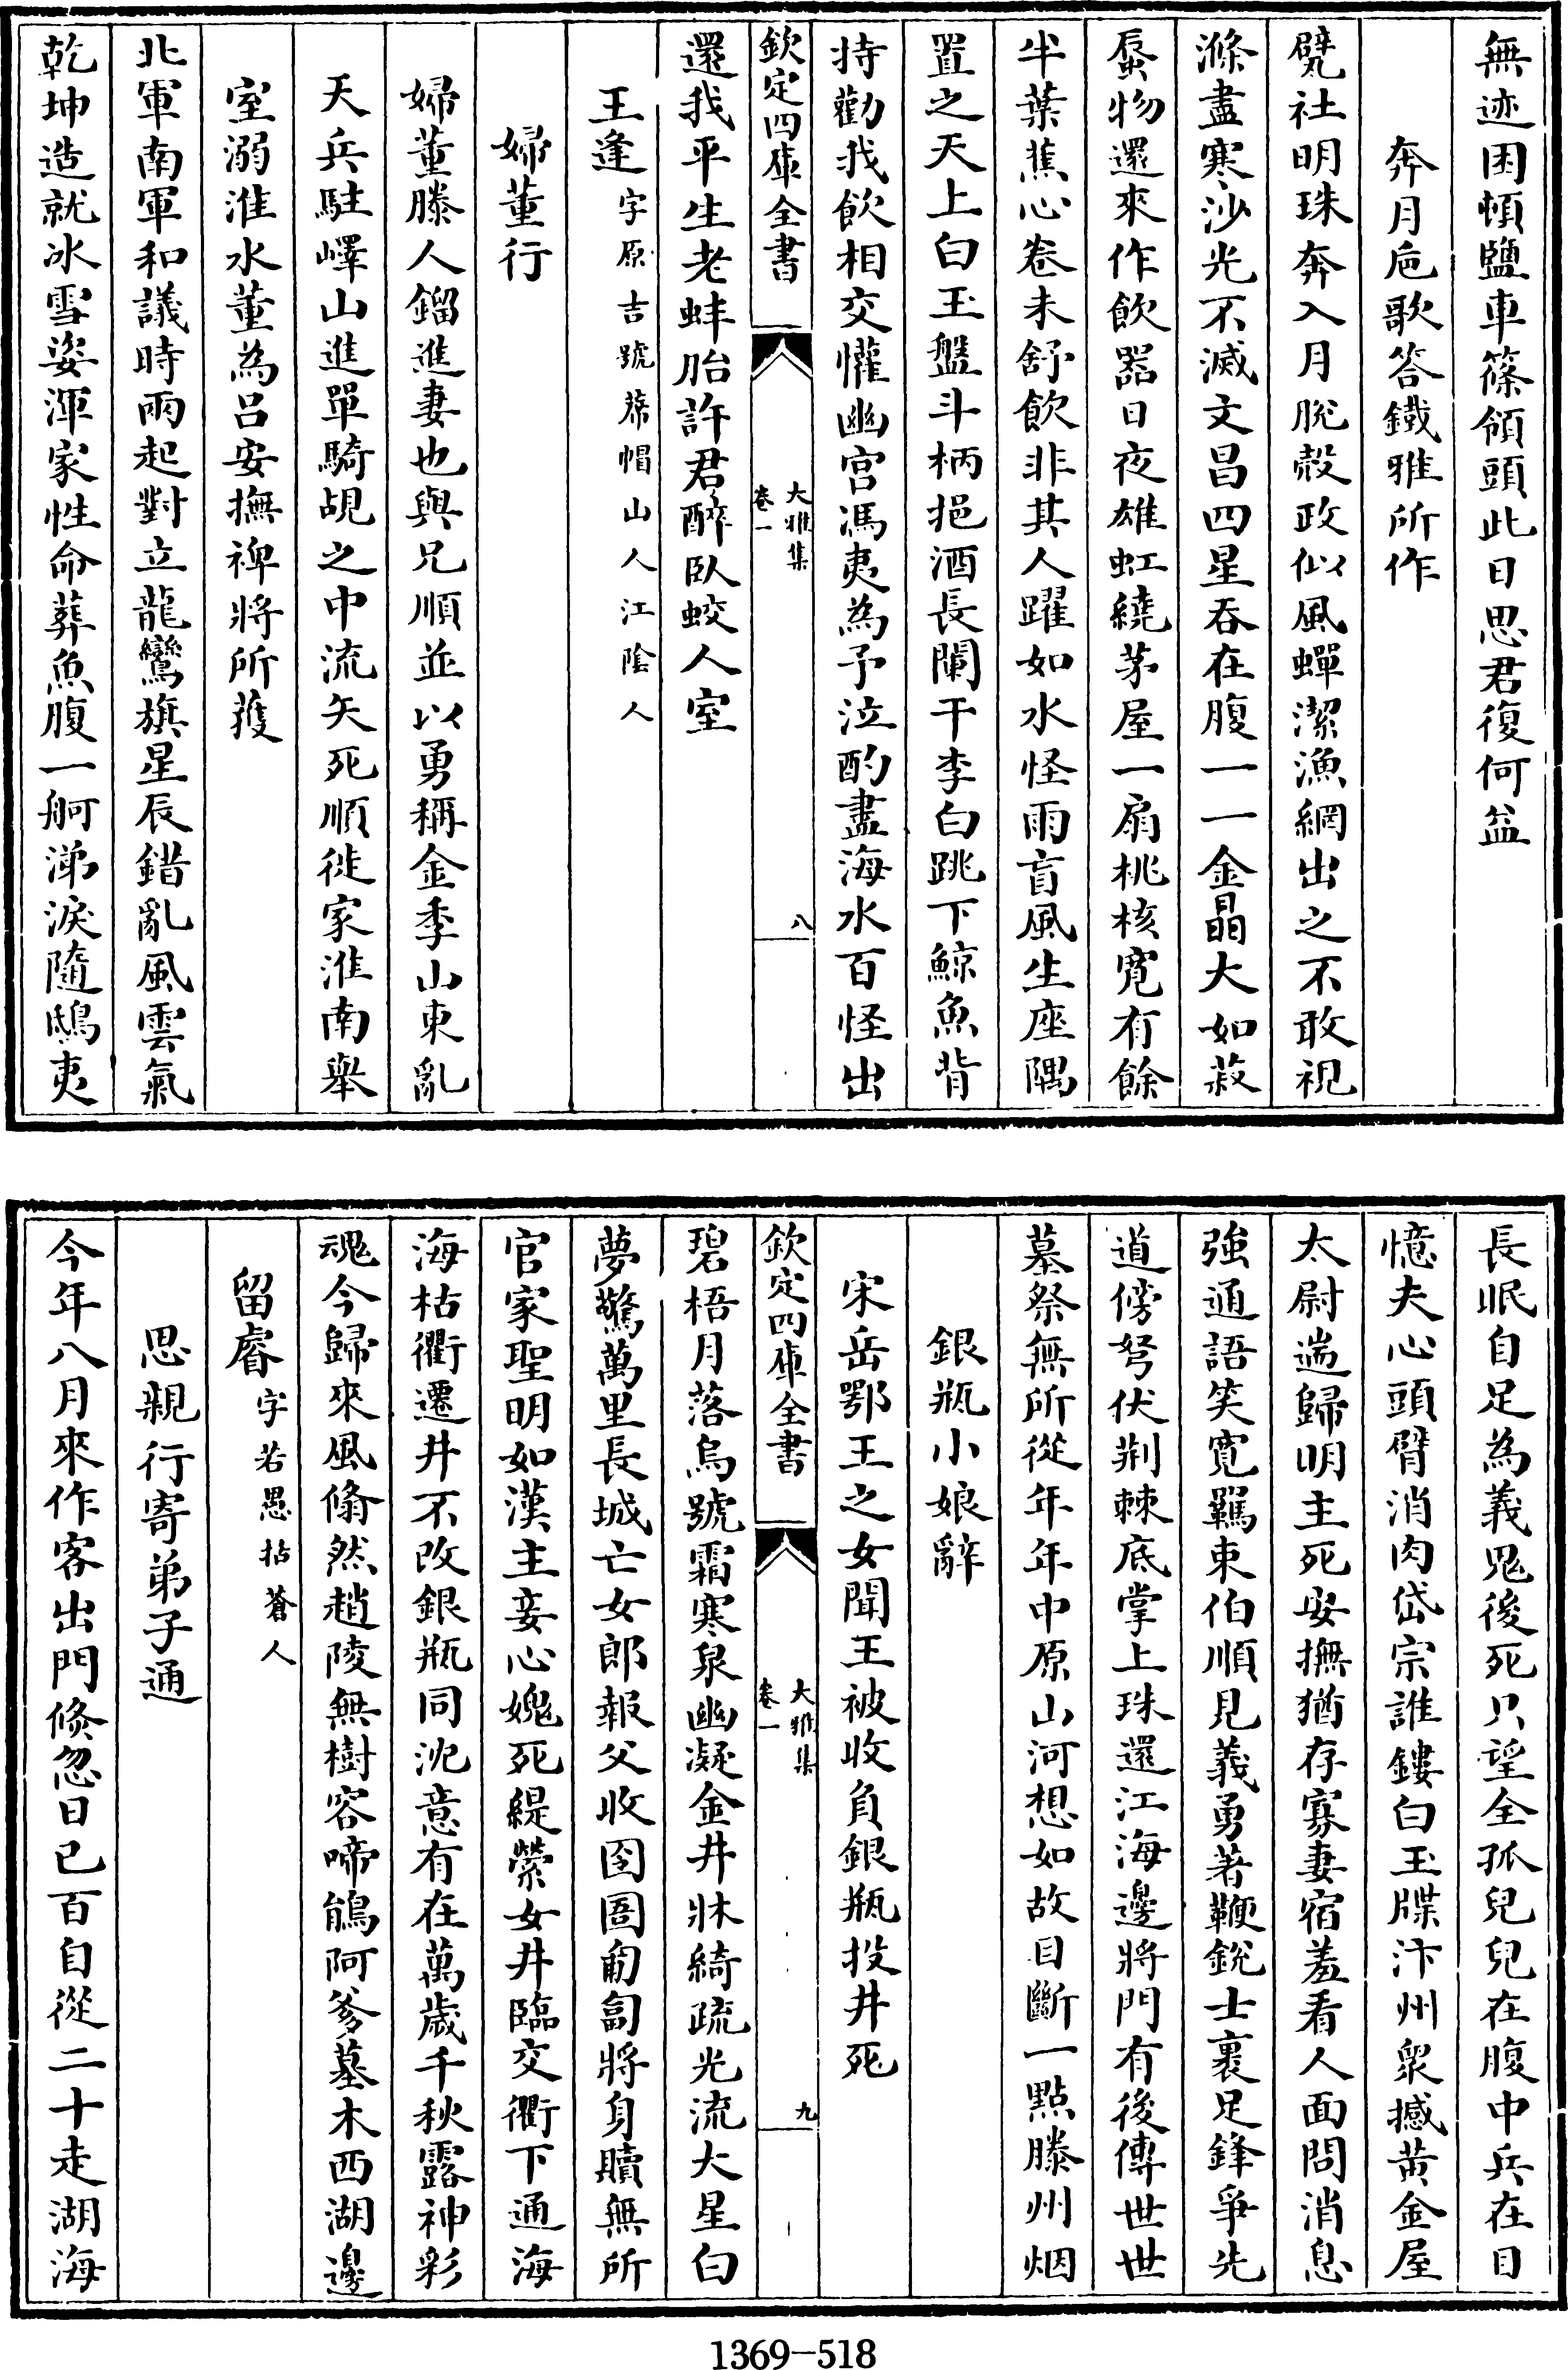 無迹困頓鹽車篠領頭此日思君復何益
奔月卮歌答鐵雅所作
甓社明珠奔入月脫殻政似風蟬潔漁網出之不敢視
滌盡寒沙光不滅文昌四星吞在腹一一金晶大如菽
蜃物還來作飲器日夜雄虹繞茅屋一扇桃核寛有餘
半葉蕉心卷未舒飲非其人躍如水怪雨盲風生座隅
置之天上白玉盤斗柄挹酒長闌干李白跳下鯨魚背
持勸我飲相交懽幽宫馮夷為予泣酌盡海水百怪出
欽定四庫全書
大雅集
卷一
八
還我平生老蚌胎許君醉臥蛟人室
王逢字原吉號蓆帽山人江陰人
婦董行
婦董滕人鎦進妻也與兄順並以勇稱金季山東亂
天兵駐嶧山進單騎覘之中流矢死順徙家淮南舉
室溺淮水董為呂安撫裨將所獲
北軍南軍和議時兩起對立龍鸞旗星辰錯亂風雲氣
乾坤造就冰雪姿渾家性命葬魚腹一舸涕淚隨鴟夷
長眠自足為義鬼後死只望全孤兒兒在腹中兵在目
憶夫心頭臂消肉岱宗誰鏤白玉牒汴州衆撼黄金屋
太尉遄歸明主死安撫猶存寡妻宿羞看人面問消息
強通語笑寛羈束伯順見義勇著鞭銳士裹足鋒爭先
道傍弩伏荆棘底掌上珠還江海邊將門有後傳世世
墓祭無所從年年中原山河想如故目斷一點滕州烟
銀瓶小娘辭
宋岳鄂王之女聞王被收負銀瓶投井死
欽定四庫全書
大雅集
卷一
九
碧梧月落烏號霜寒泉幽凝金井牀綺疏光流大星白
夢驚萬里長城亡女郎報父收囹圄匍匐將身贖無所
官家聖明如漢主妾心媿死緹縈女井臨交衢下通海
海枯衢遷井不改銀瓶同沈意有在萬歲千秋露神彩
魂今歸來風翛然趙陵無樹容啼鵑阿爹墓木西湖邊
留睿字若愚括蒼人
思親行寄弟子通
今年八月來作客出門倐忽日已百自從二十走湖海
1369-518